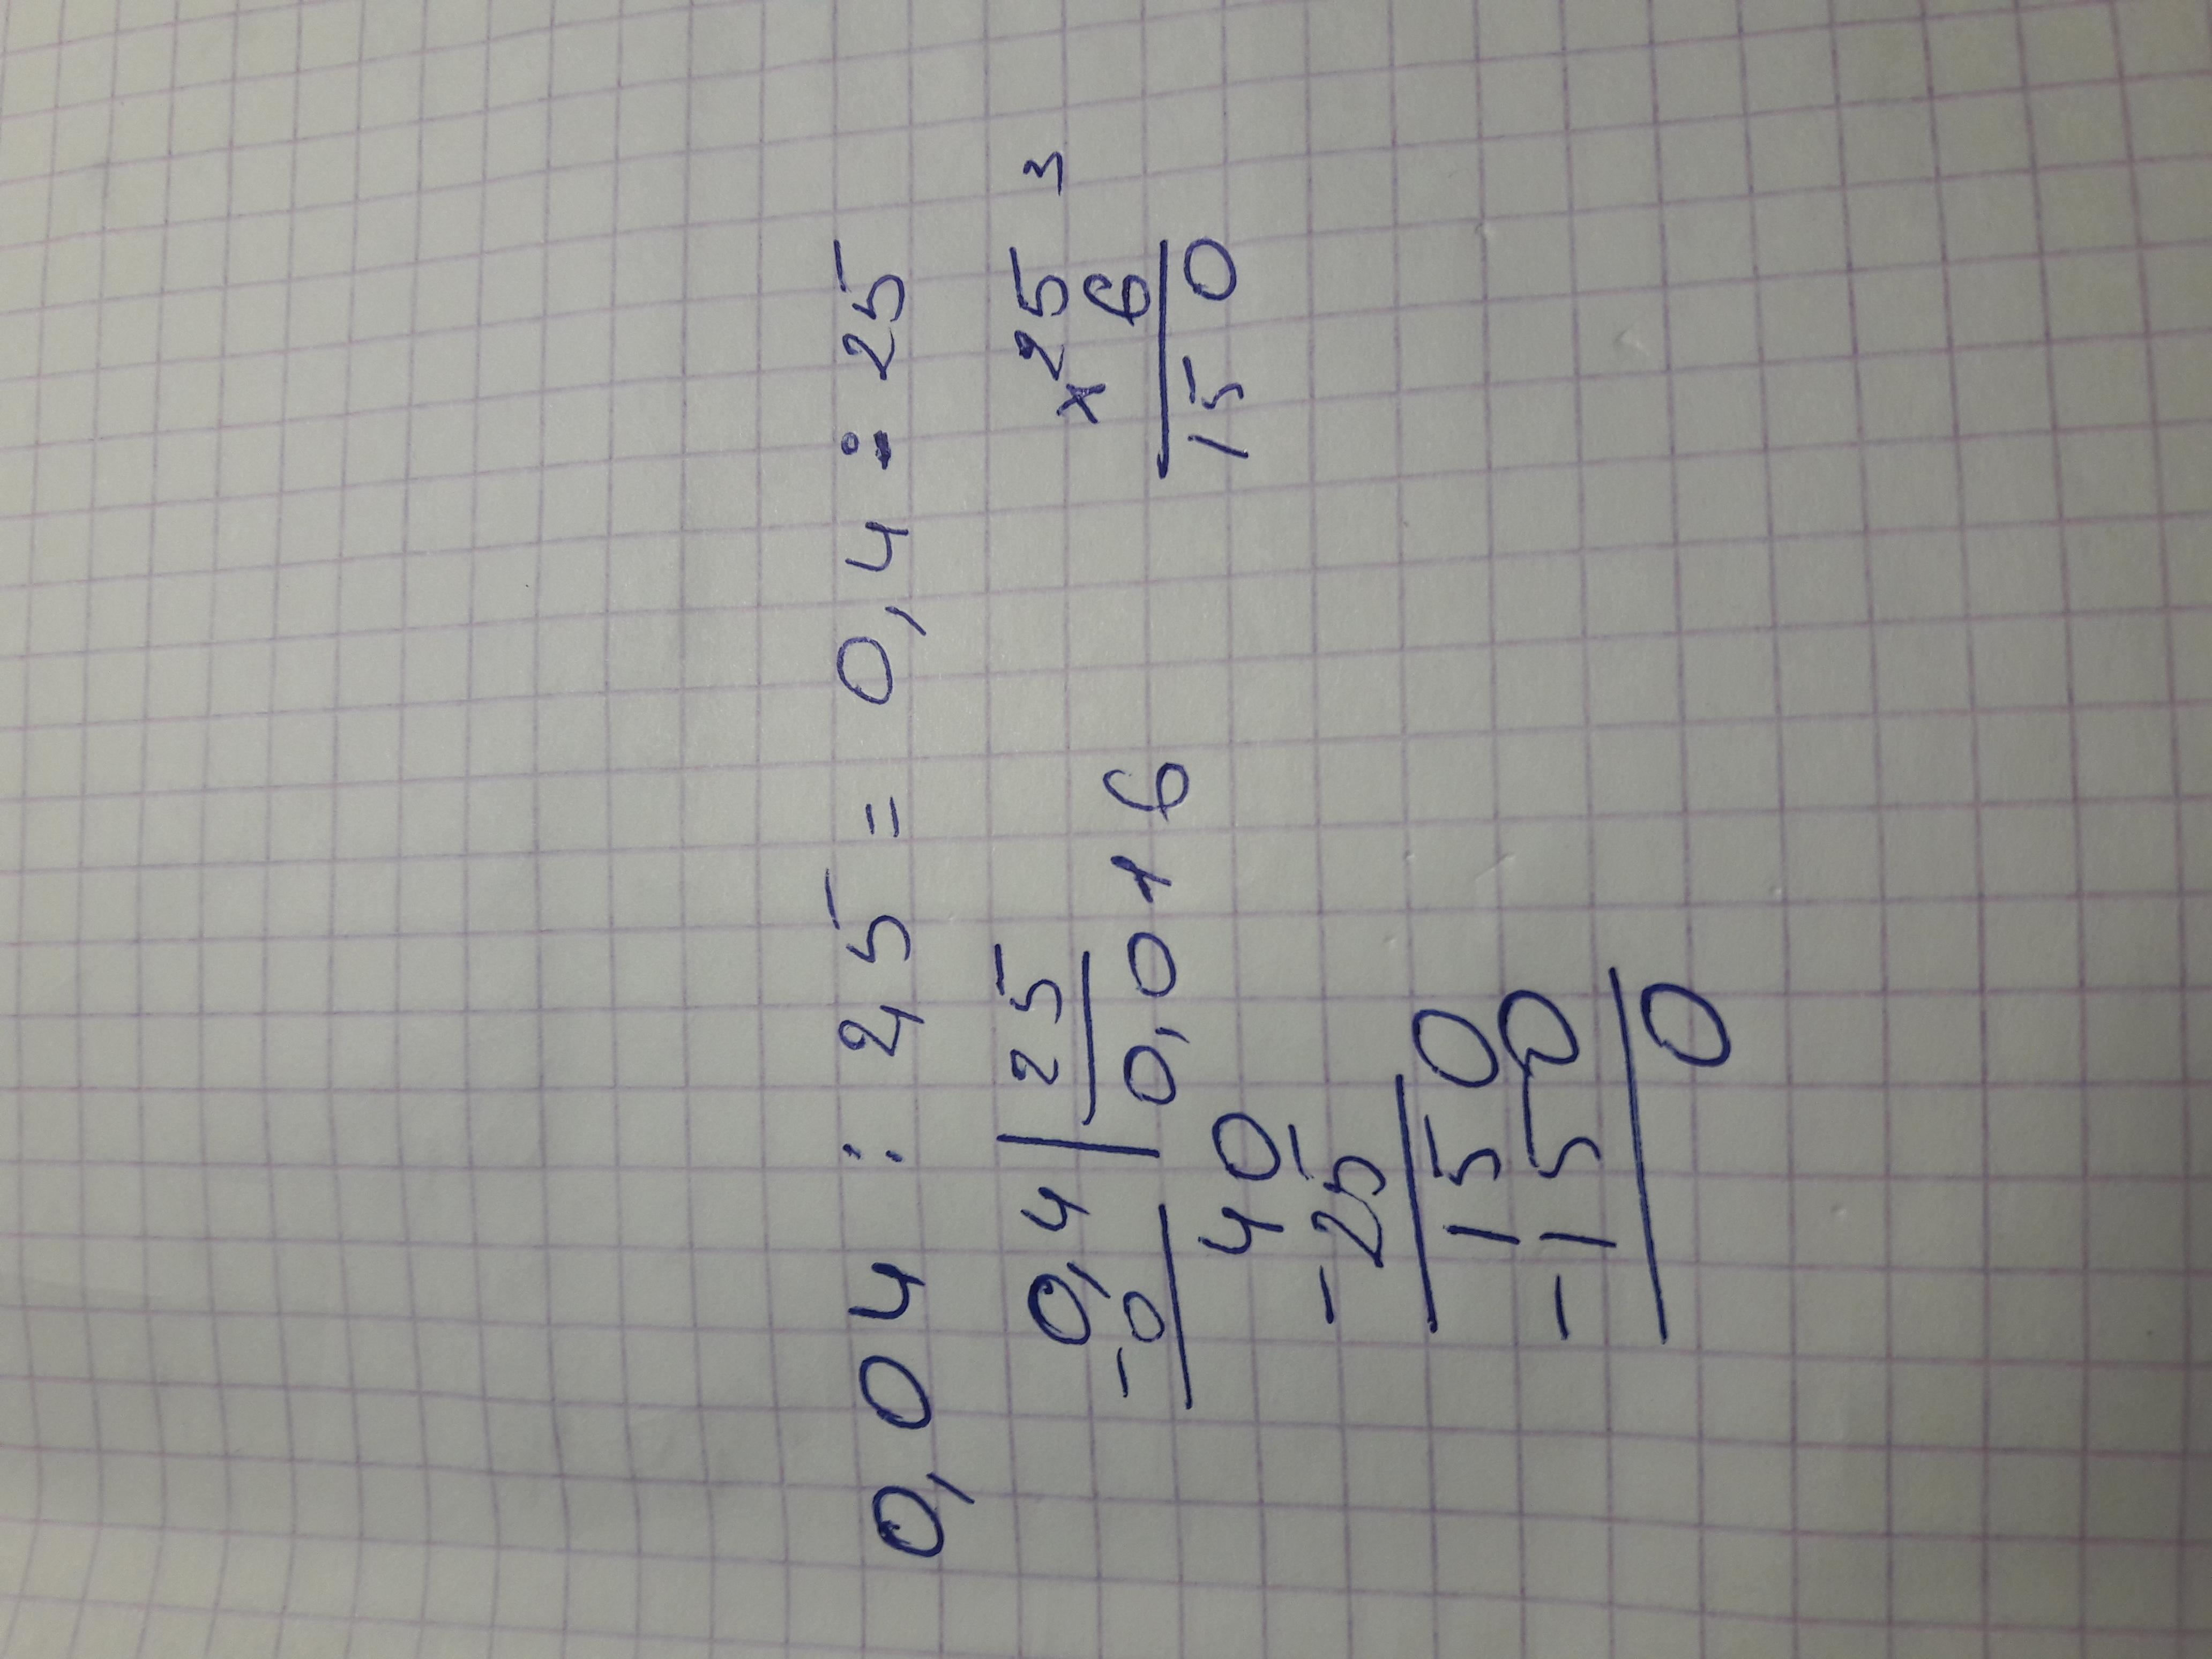 0,04 : 25 = 0,4 : 25
0,4 | 25
-0
0,016
40
-25
150
-150
0
×25 3
6
150